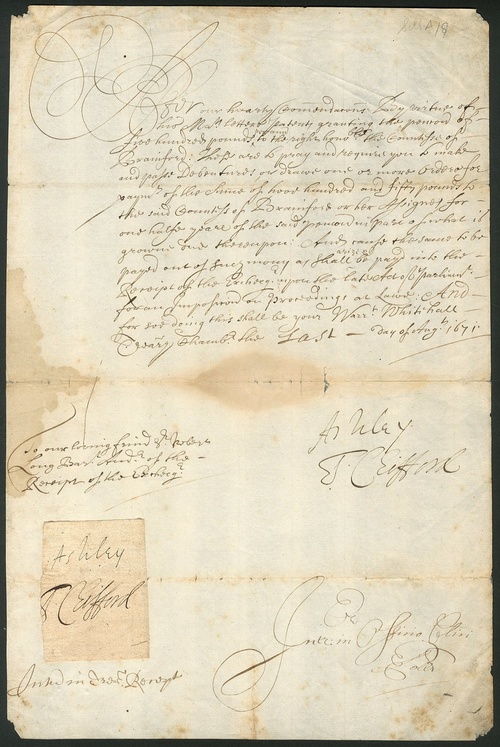 After our hearty Comendacons By vertue of
his Ma.ts Letters Patents granting the pencon of
five hundred pounds p ann to the right hono.ble the Countesse of
Bramford: These are to pray and require you to make
and passe Debentures or drawe one or more Orders for
paym.t of the Sume of twoe hundred and fifty pounds to
the said Countess of Bramford or her Assignes for
one halfe yeare of the said pencon in part of what is
growne due thereupon: And cause the same to be
payed out of such mony as shall arise & be payd into the
Receipt of the Excheq.r upon the late Act of Parliam.t
for an Imposicon on Proceedings at Lawe: And
for soe doeing this shall be your Warr.t Whitehall
Treas.ry Chamb.rs the Last day of Aug.t 1671.
Ashley
T. Clifford
To our loving friend S.r Robert
Long Bar.t Aud.r of the
Receipt of the Excheq.r
Ashley
T. Clifford
Intr. in Officio